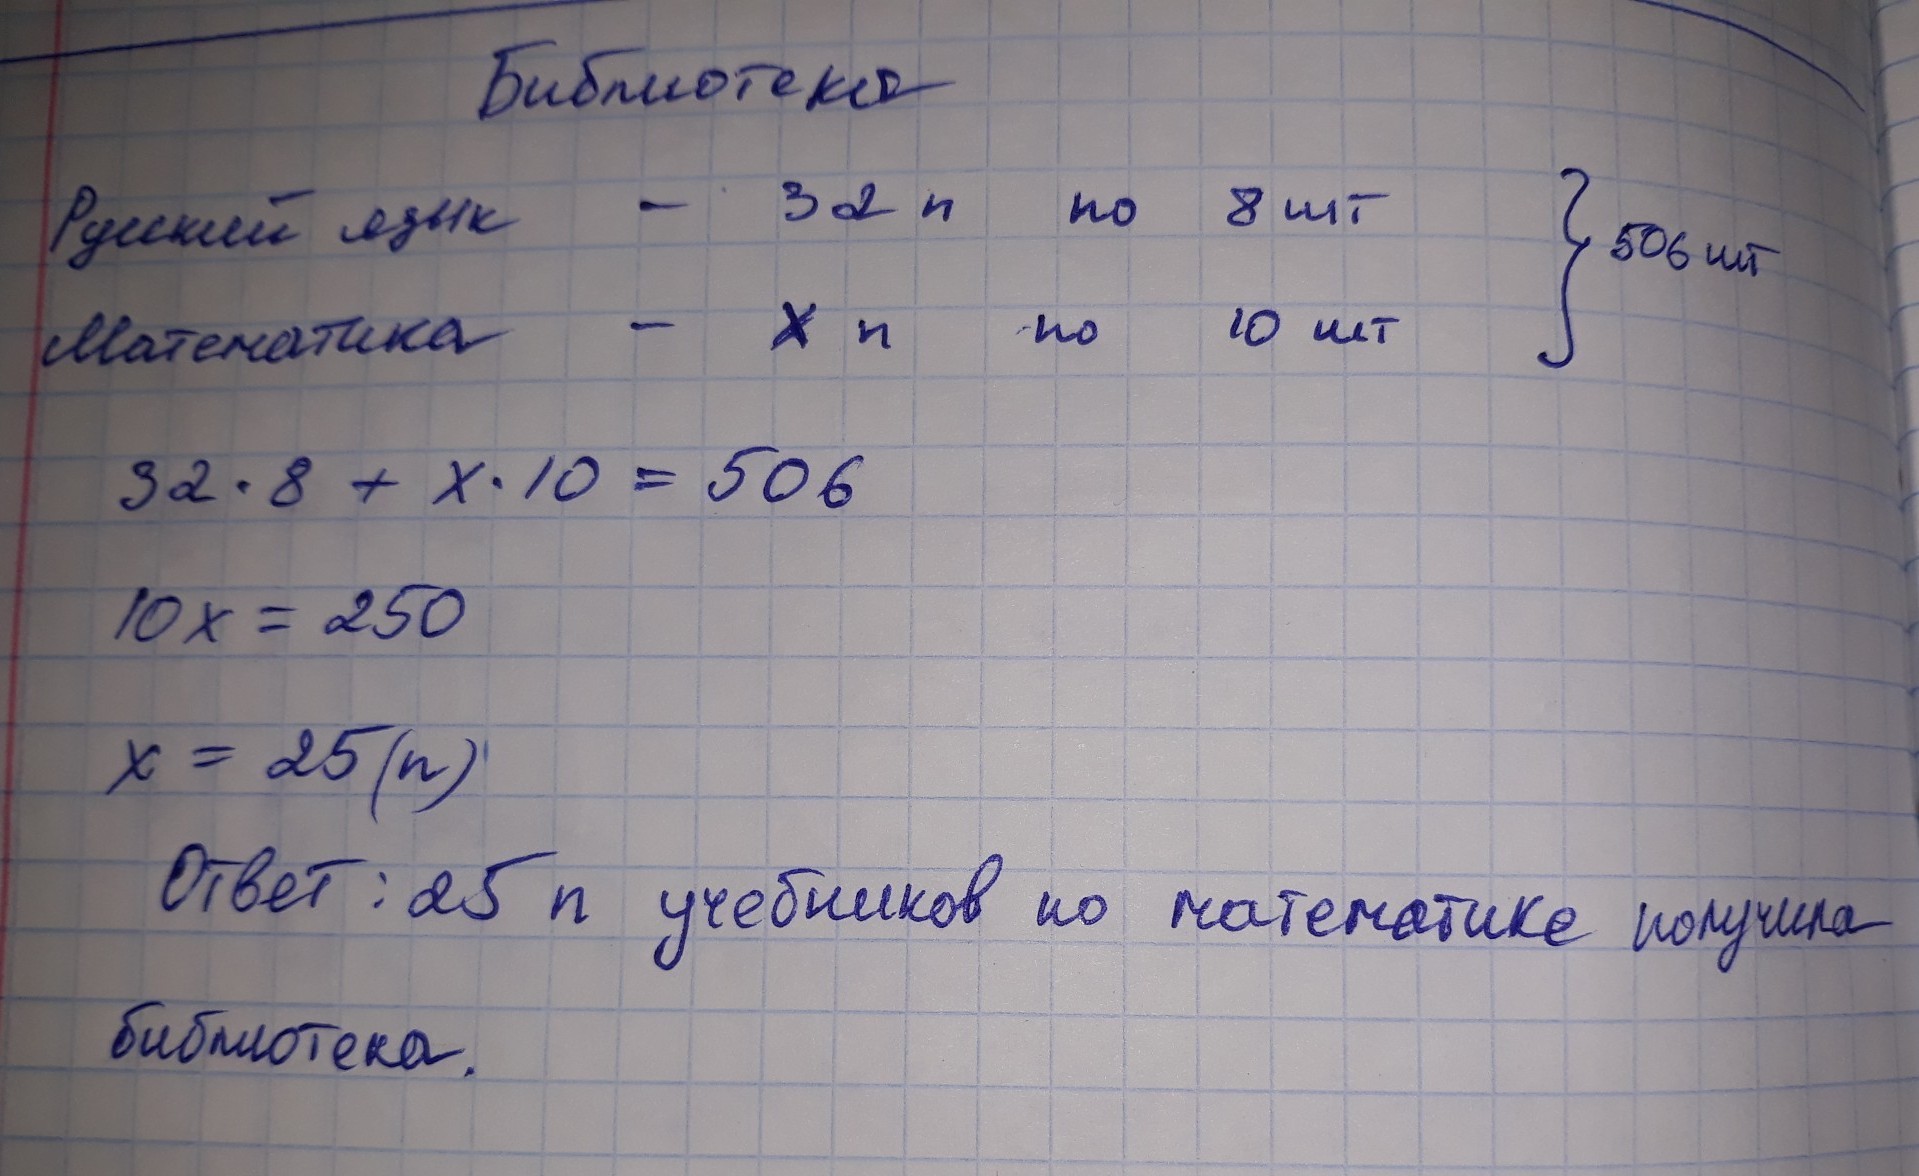 Библиотека
Русский язык - 32 п по 8 шт } 506 шт
Математика - х п по 10 шт
32 · 8 + х · 10 = 506
10х = 250
х = 25 (п)
Ответ: 25 п учебников по математике получила
библиотека.